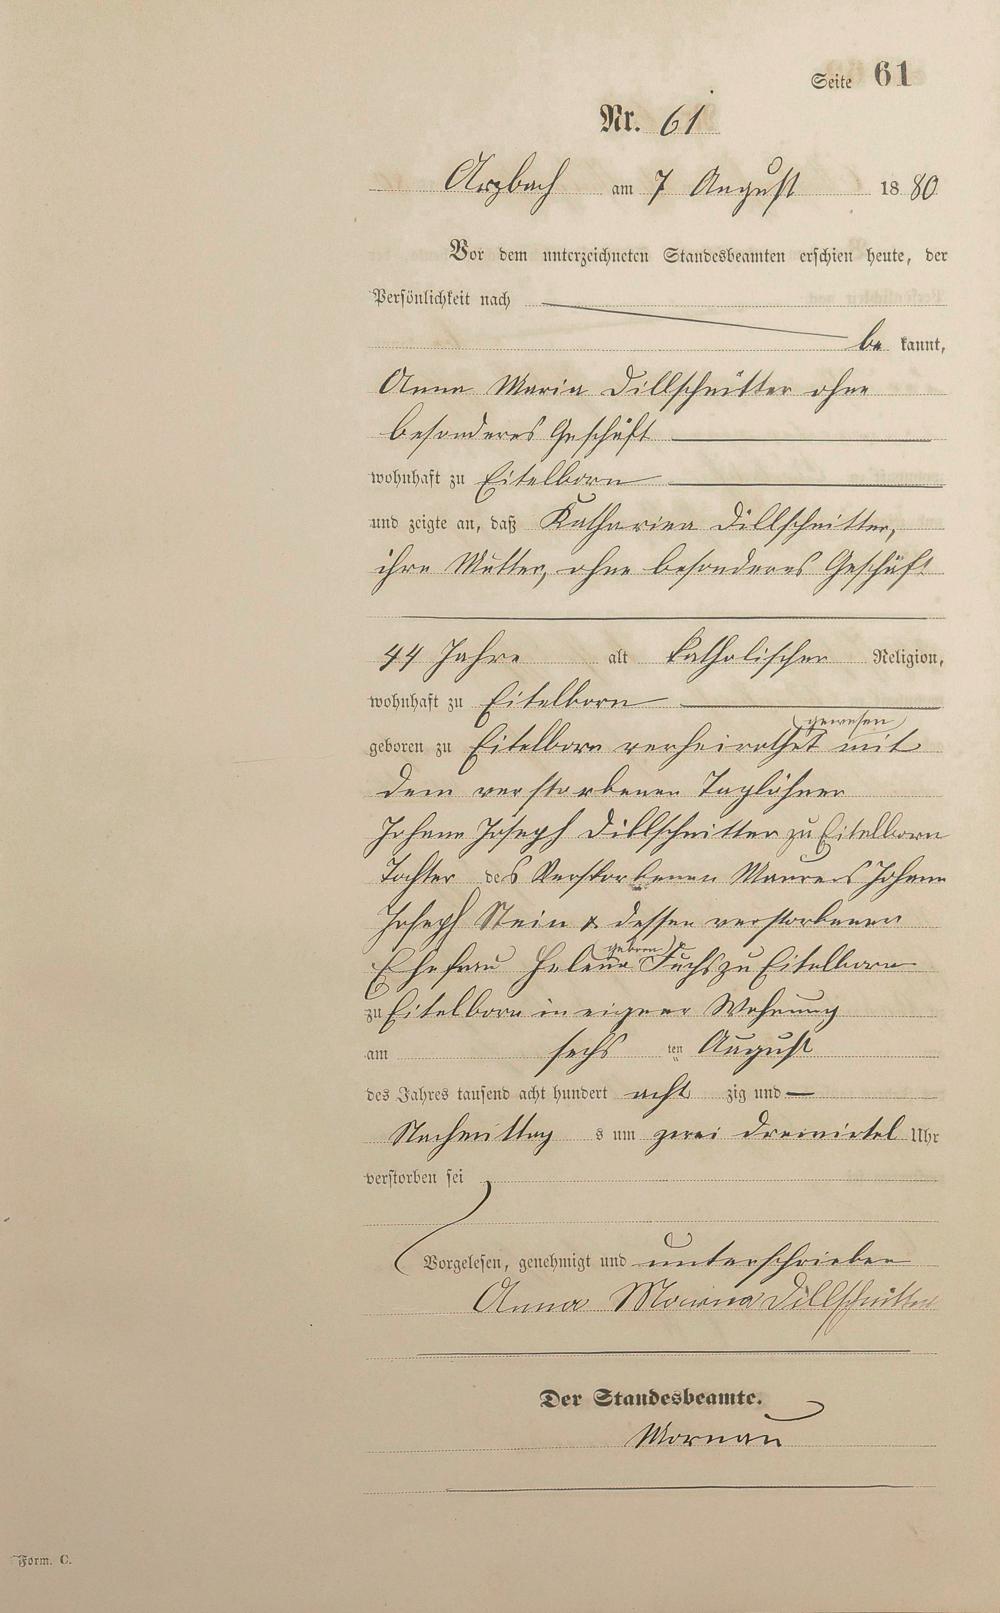 Seite 61
Nr. 61
Arzbach am 7 August 1880
Vor dem unterzeichneten Standesbeamten erschien heute, der
Persönlichkeit nach
be kannt,
Anna Maria Dillschnitter ohne
besonderes Geschäft
wohnhaft zu Eitelborn
und zeigte an, daß Katharina Dillschnitter,
ihre Mutter, ohne besonderes Geschäft
44 Jahre alt katholischer Religion,
wohnhaft zu Eitelborn
(gewesen)
geboren zu Eitelborn verheirathet mit
dem verstorbenen Taglöhner
Johann Joseph Dillschnitter zu Eitelborn
Tochter des Verstorbenen Maurers Johann
Joseph Stein & dessen verstorbenen
geboren
Ehefrau Helena Fuchs zu Eitelborn
zu Eitelborn in eigner Wohnung
am sechs ten August
des Jahres tausend acht hundert acht zig und —
Nachmittag s um zwei dreiviertel Uhr
verstorben sei
Vorgelesen, genehmigt und unterschrieben
Anna Maria Dillschnitter
Der Standesbeamte.
Mornau
Form. C.